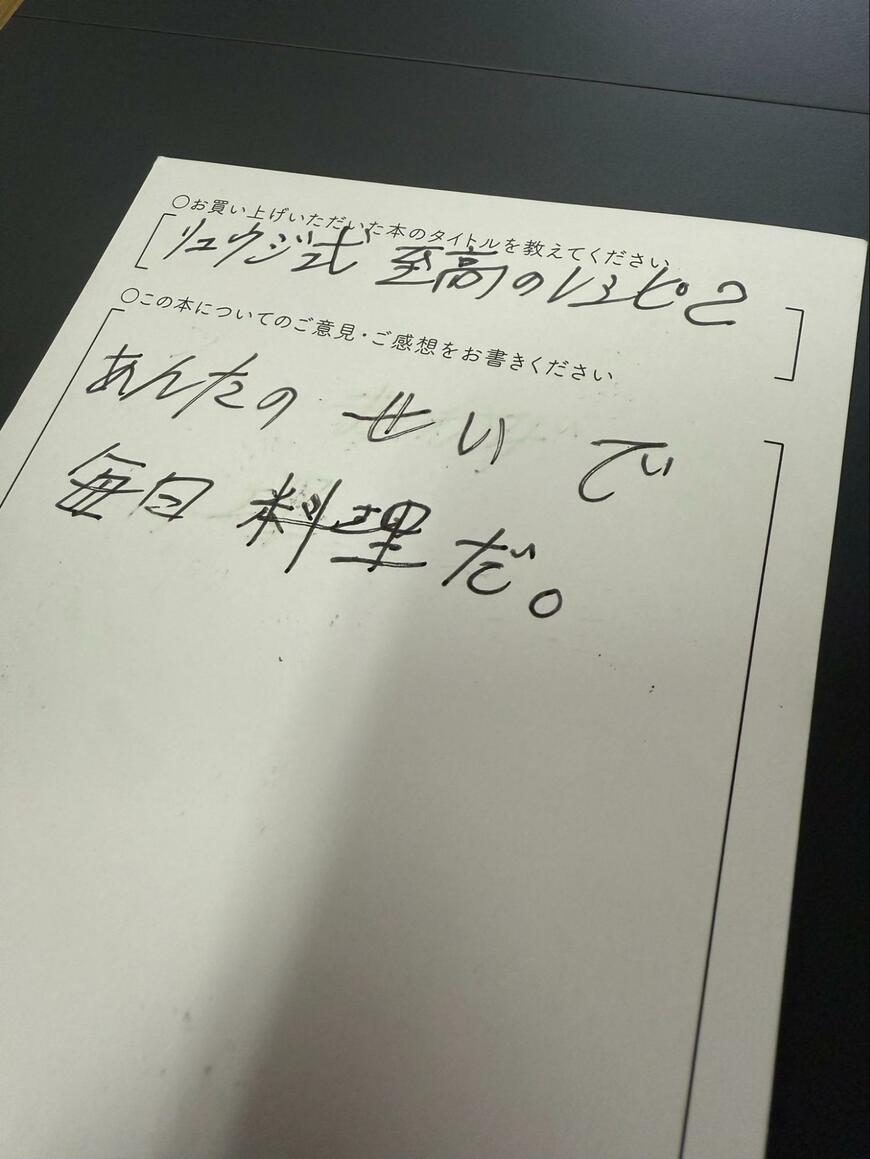 ○お買い上げいただいた本のタイトルを教えてください
リュウジ式 至高のレシピ2
○この本についてのご意見・ご感想をお書きください
あんたの せいで
毎日 料理だ。